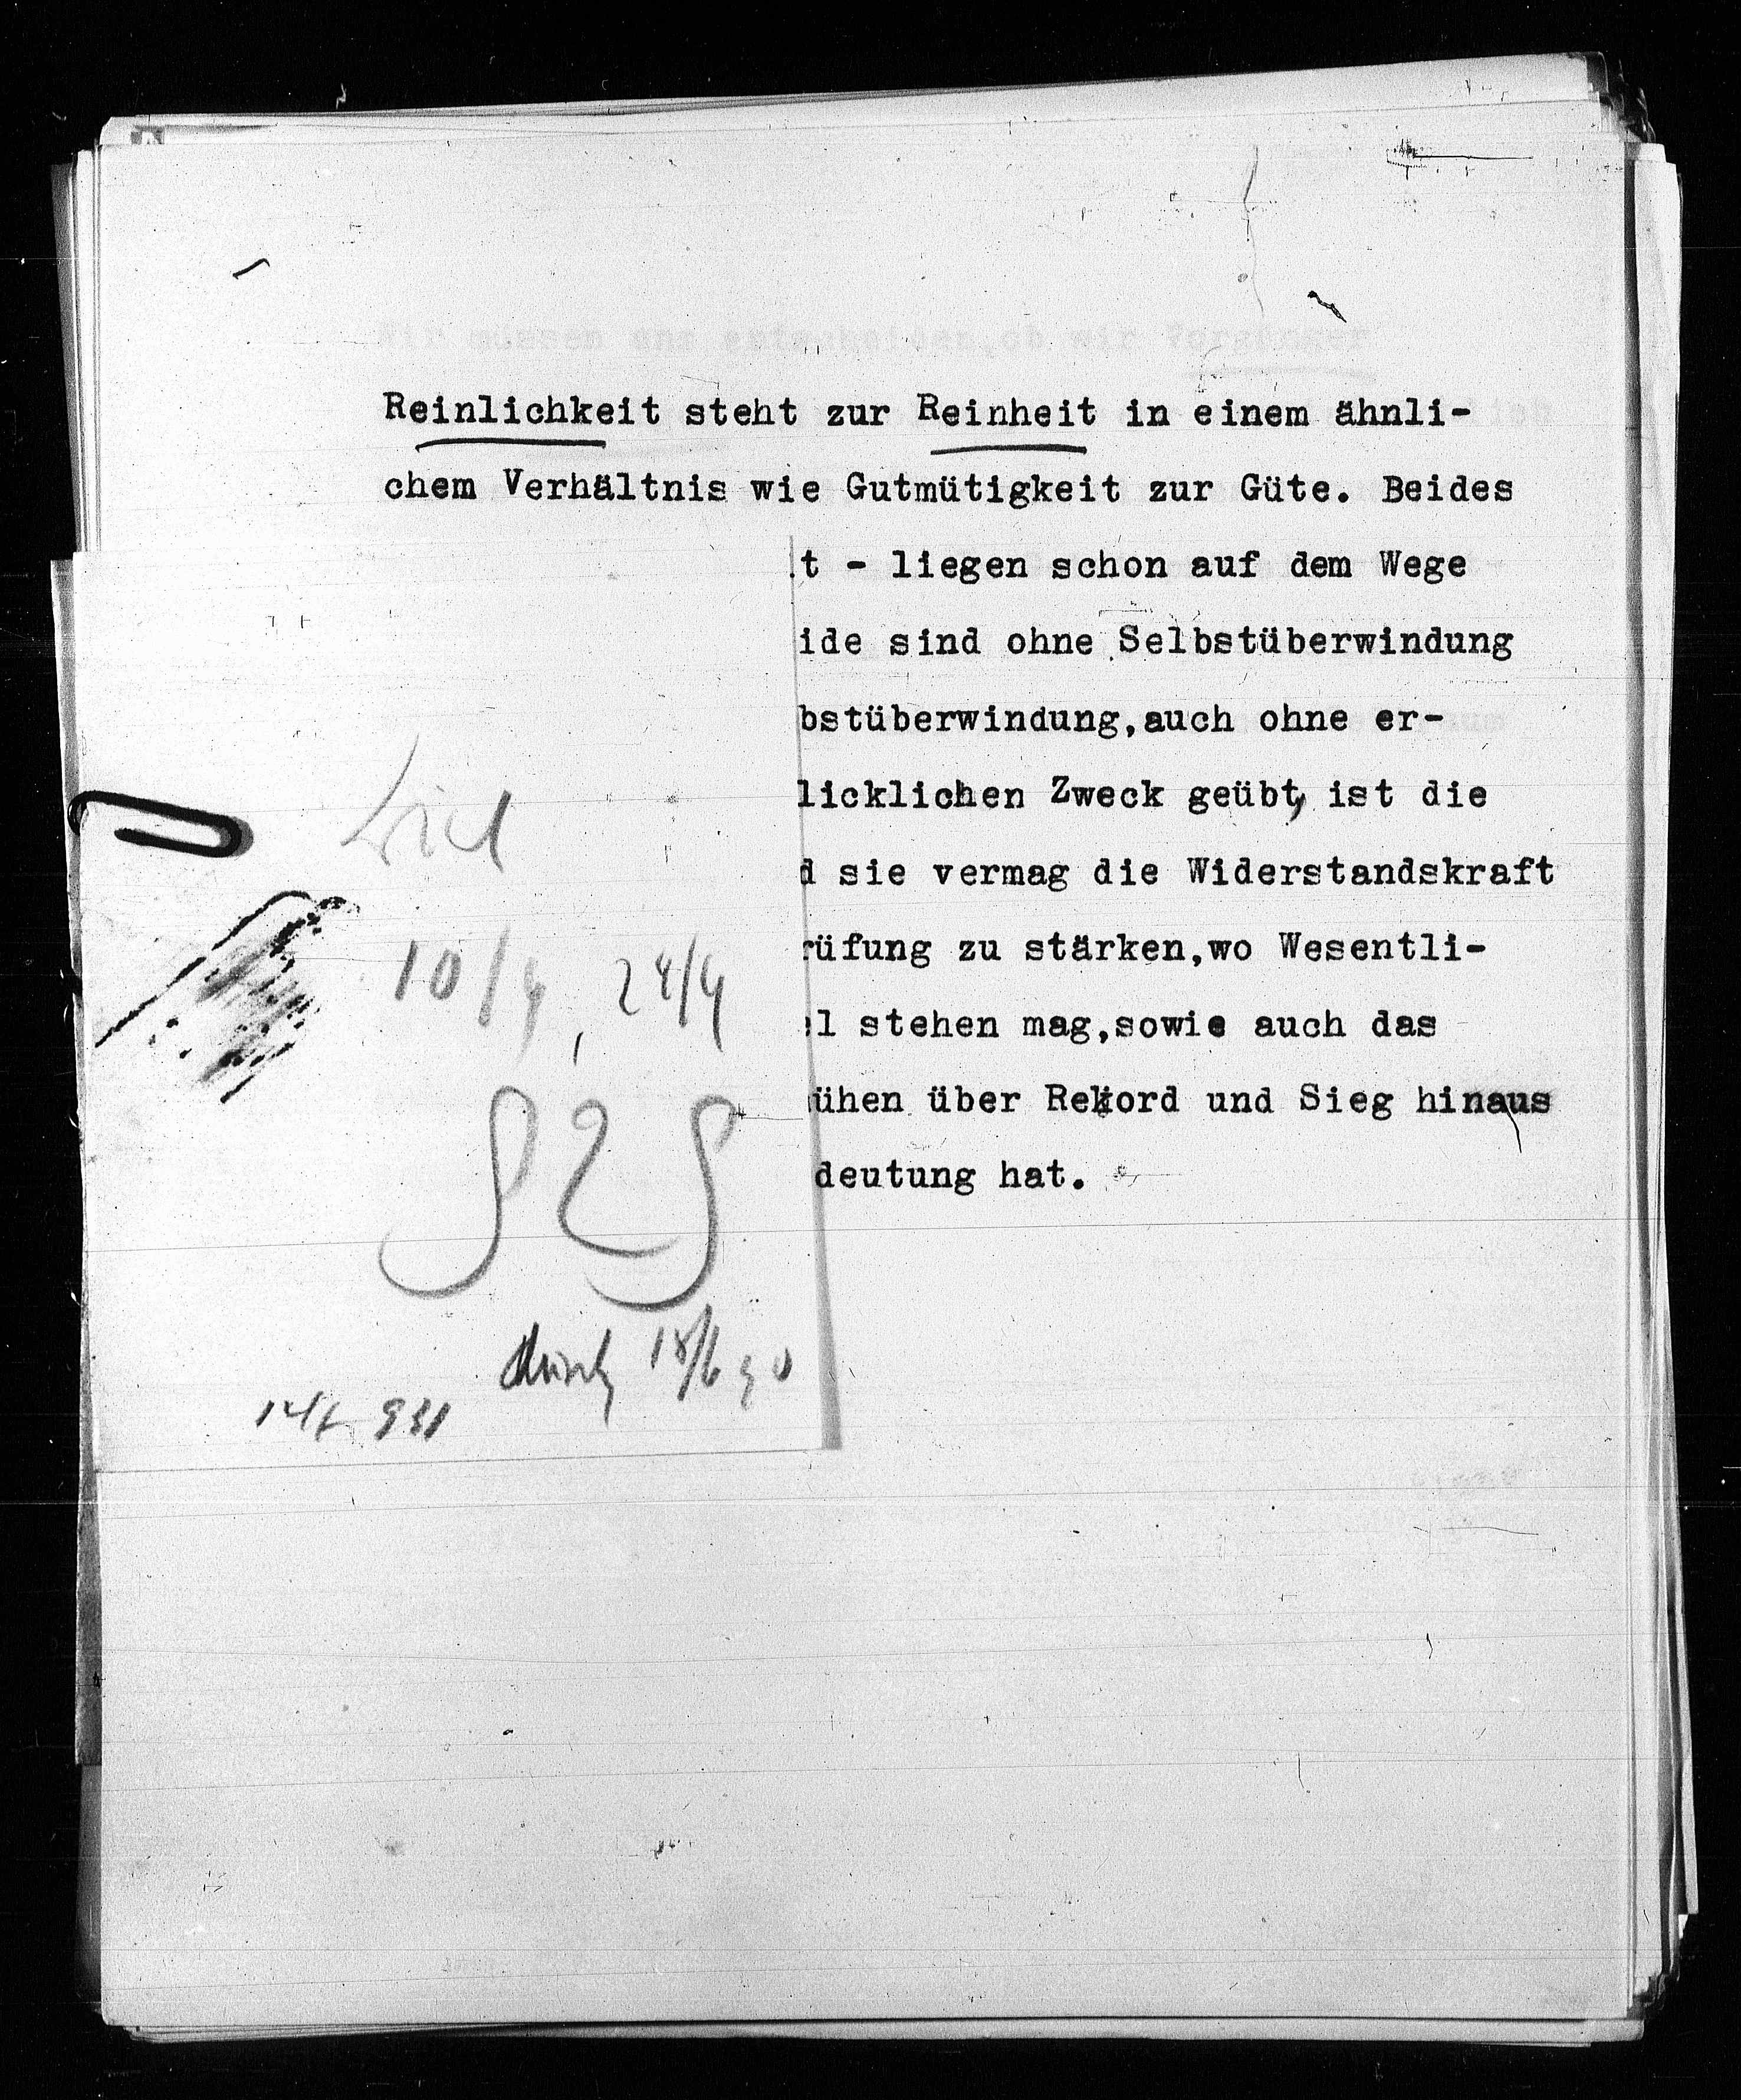 Reinlichkeit steht zur Reinheit in einem ähnli-
chem Verhältnis wie Gutmütigkeit zur Güte. Beides
t - liegen schon auf dem Wege
ide sind ohne Selbstüberwindung
bstüberwindung, auch ohne er-
licklichen Zweck geübt, ist die
d sie vermag die Widerstandskraft
rüfung zu stärken, wo Wesentli-
l stehen mag, sowie auch das
ühen über Rekord und Sieg hinaus
deutung hat.
10/4, 24/4
929
18/6 30
931